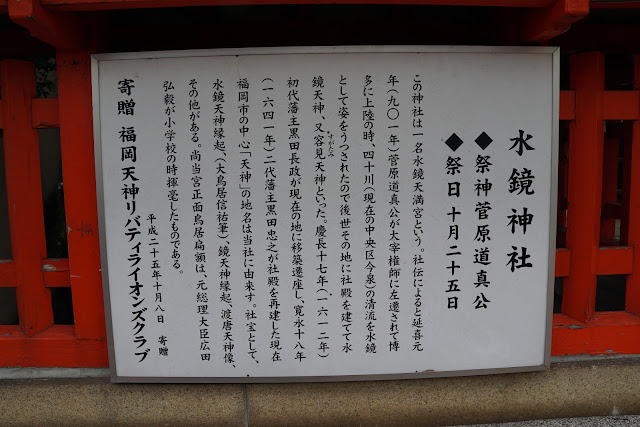 水鏡神社
◆祭神菅原道真公
◆祭日 十月二十五日
この神社は一名水鏡天満宮という。社伝によると延喜元
年(九〇一年)菅原道真公が大宰権師に左遷されて博
多に上陸の時、四十川(現在の中央区今泉)の清流を水鏡
として姿をうつされたので後世その地に社殿を建てて水
鏡天神、又容見天神といった。慶長十七年(一六一二年)
すがたみ
初代藩主黒田長政が現在の地に移築遷座し、寛永十八年
(一六四一年)二代藩主黒田忠之が社殿を再建した現在
福岡市の中心「天神」の地名は当社に由来す。社宝として、
水鏡天神縁起、(大鳥居信祐筆)、鏡天神縁起、渡唐天神像、
その他がある。尚当宮正面鳥居扁額は、元総理大臣広田
弘毅が小学校の時揮毫したものである。
平成二十五年十月八日 寄贈
寄贈 福岡天神リバティライオンズクラブ